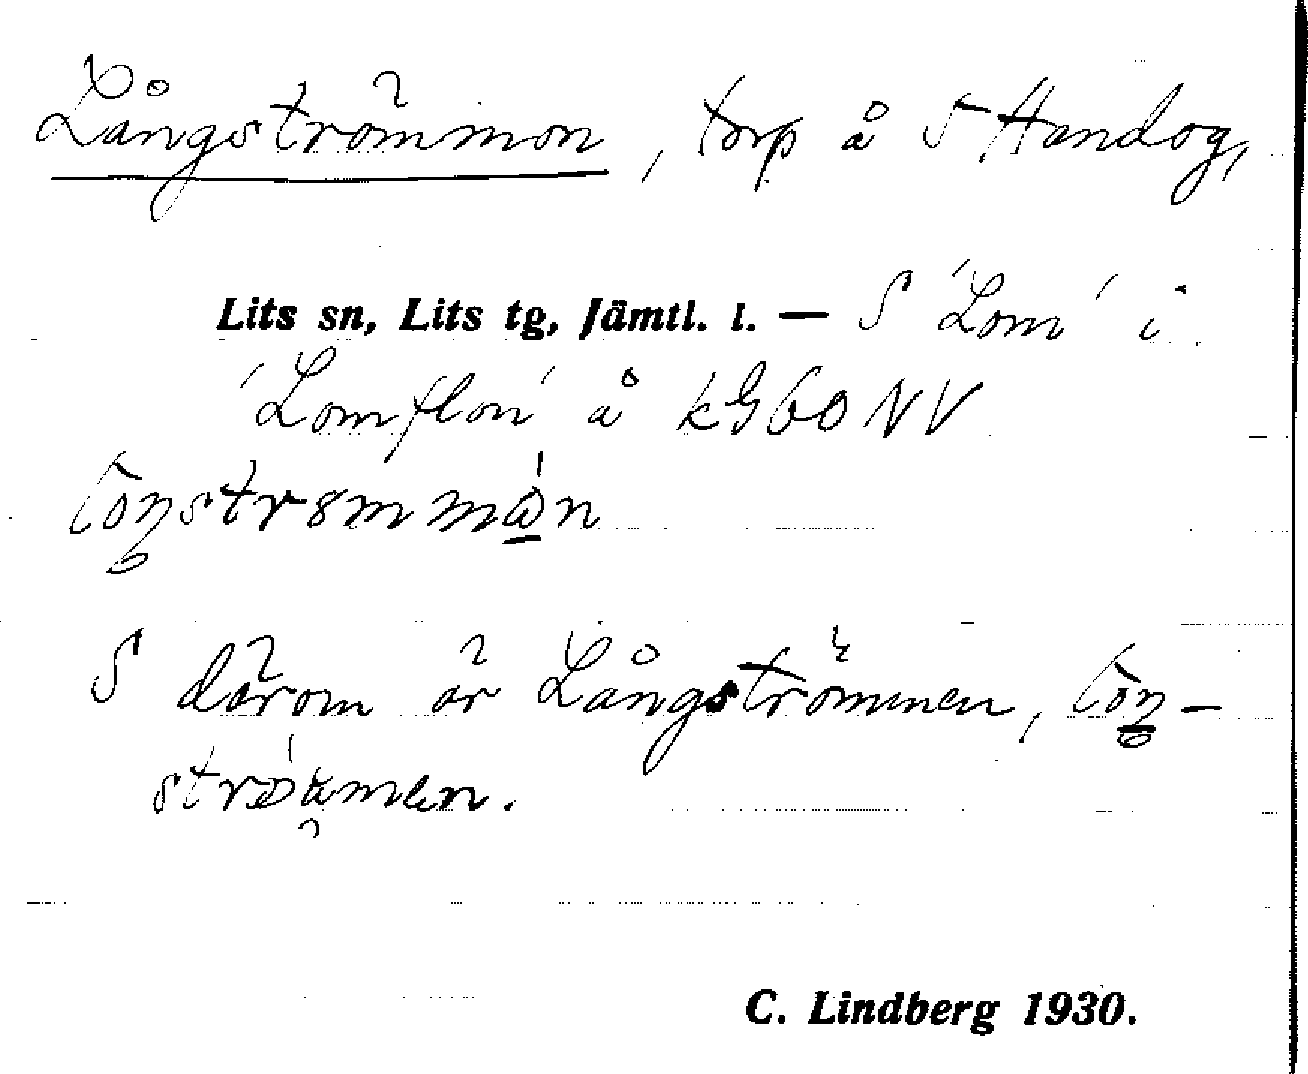 Långströmmon, torp å S Handog,
Lits sn, Lits tg, Jämtl. l. — S 'Lom' i
'Lomflon' å kG60NV
S därom är Långströmmen,
C. Lindberg 1930.